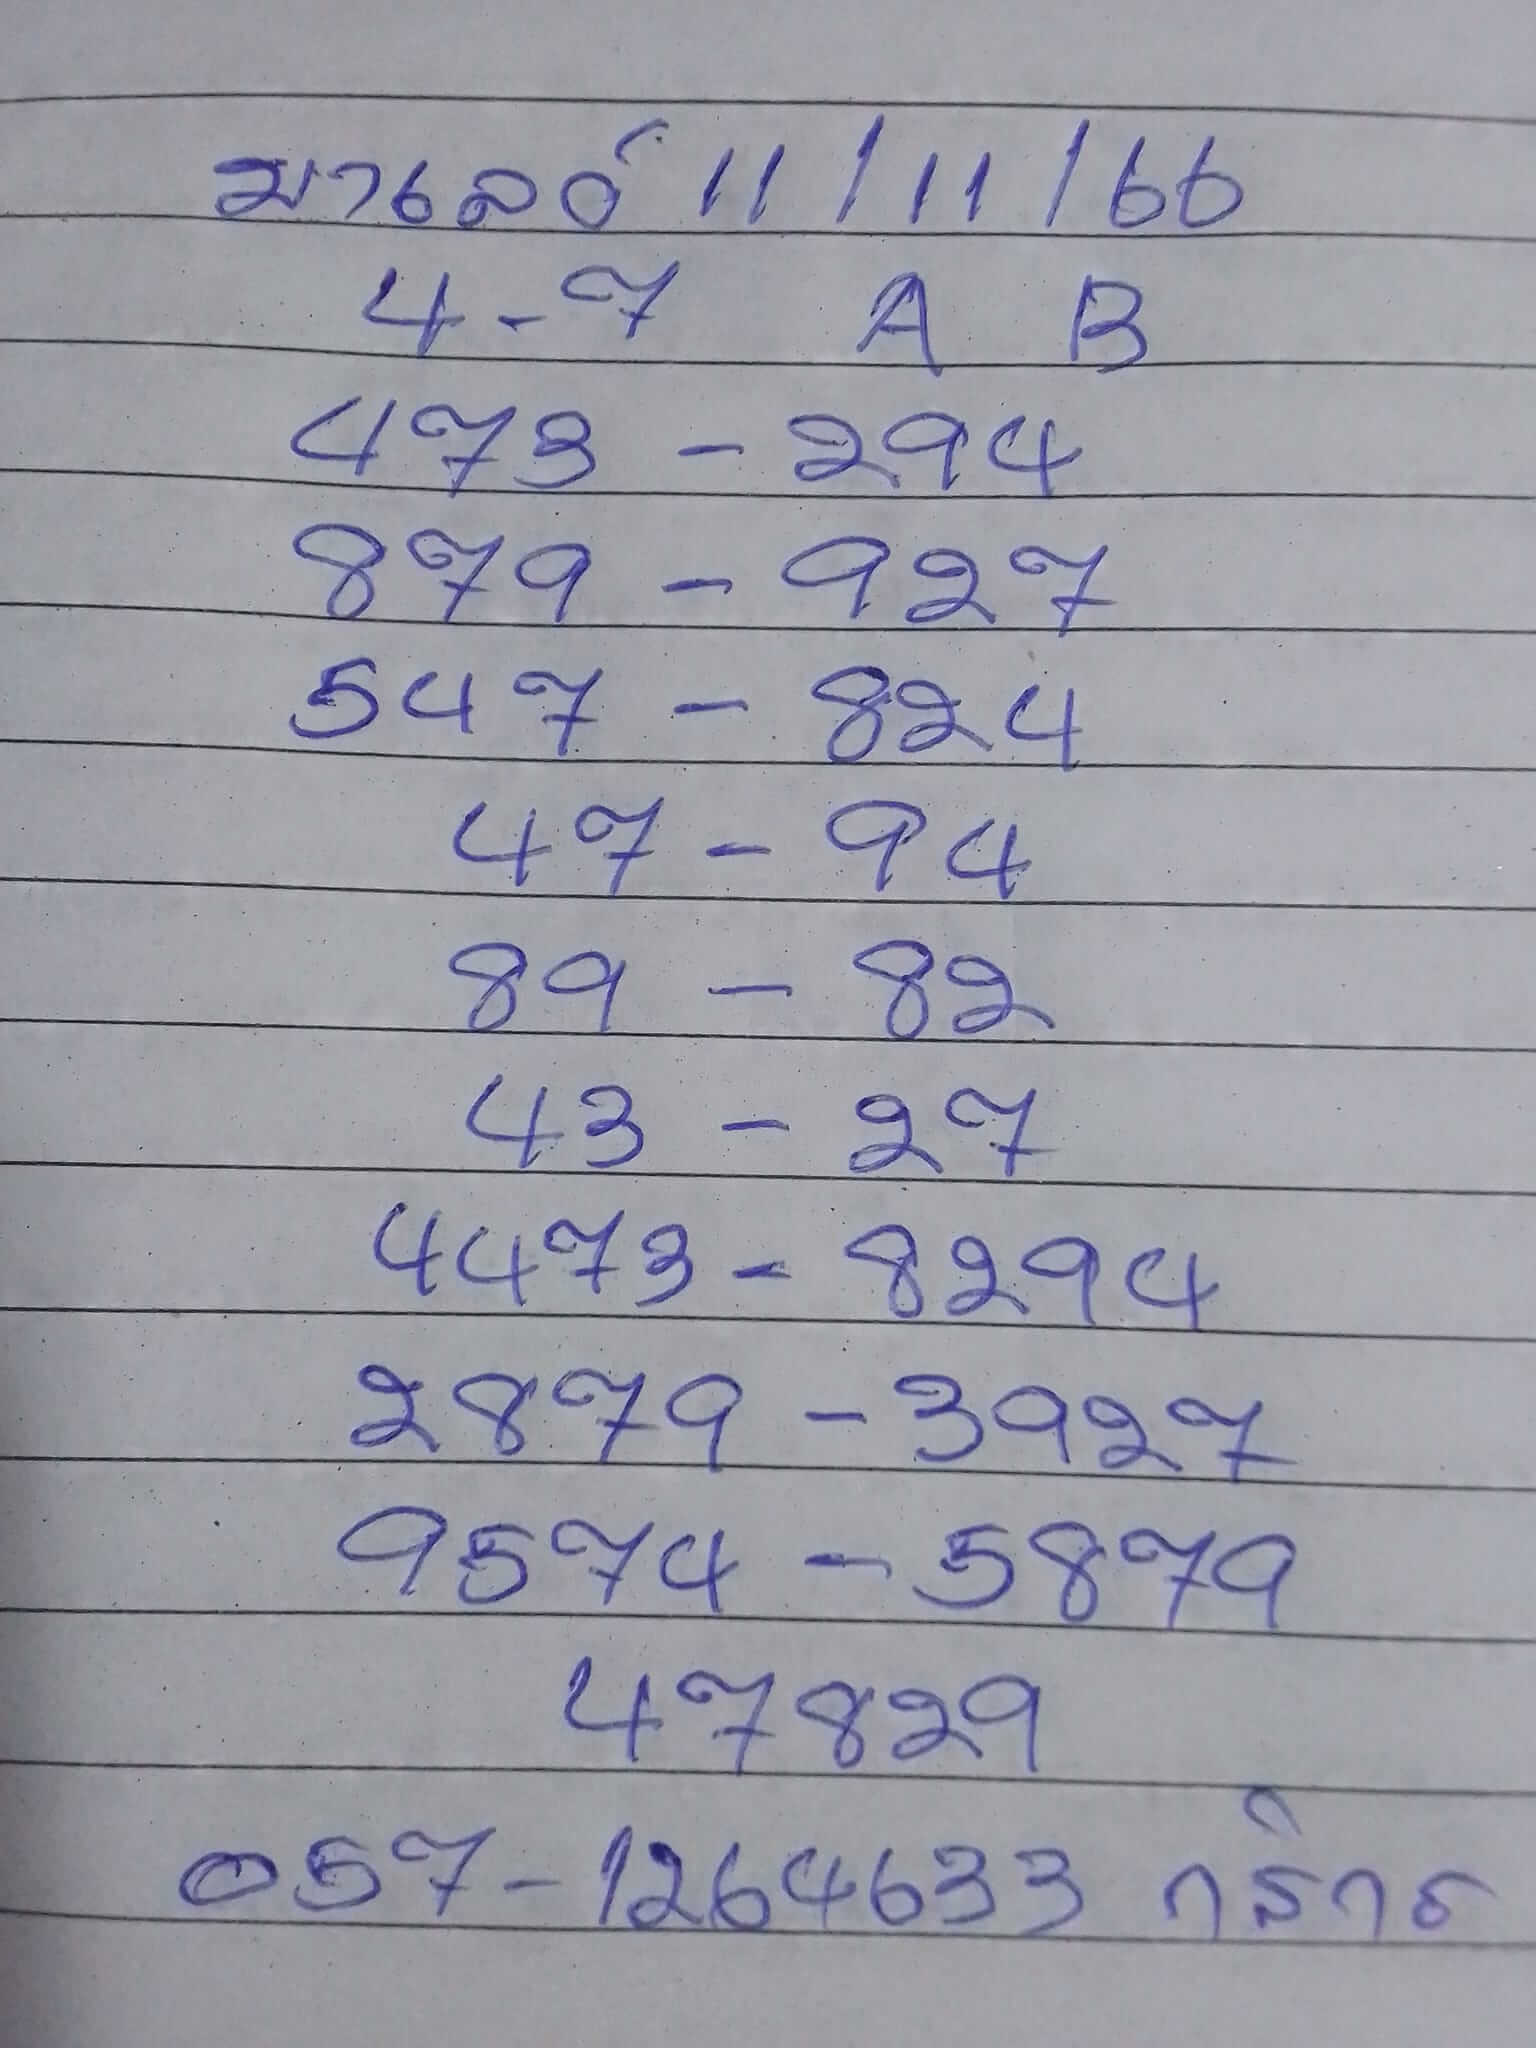 มาเลย์ 11/11/66
4-7 A B
473 - 294
879 - 927
547 - 824
47 - 94
89 - 82
43 - 27
4473 - 8294
2879 - 3927
9574 - 5879
47829
057-1264633